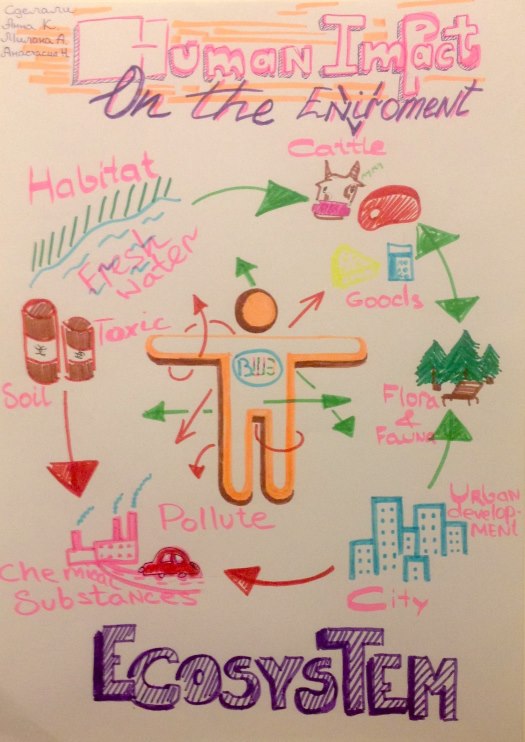 Сделали
Анна К.
Милана А.
Анастасия Ч.
Human Impact
On the Enviroment
Cattle
Habitat
Fresh
Water
Goods
Toxic
ВШЭ
Soil
Flora
&
Fauna
Urban
develop-
ment
Pollute
Chemical
Substances
City
Ecosystem